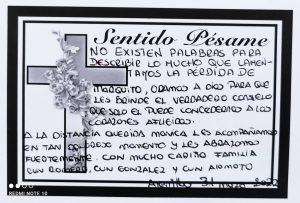 Sentido Pésame
NO EXISTEN PALABRAS PARA
DESCRIBIR LO MUCHO QUE LAMEN-
TAMOS LA PÉRDIDA DE
MARGUITO, ORAMOS A DIOS PARA QUE
LES BRINDE EL VERDADERO CONSUELO
QUE SOLO EL PUEDE CONCEDERNOS A LOS
CORAZONES AFLIGIDOS.
A LA DISTANCIA QUERIDA MONICA LES ACOMPAÑAMOS
EN TAN MOMENTO Y LES ABRAZAMOS
FUERTEMENTE. CON MUCHO CARIÑO FAMILIA
GONZALEZ Y
31
REDMI NOTE 10